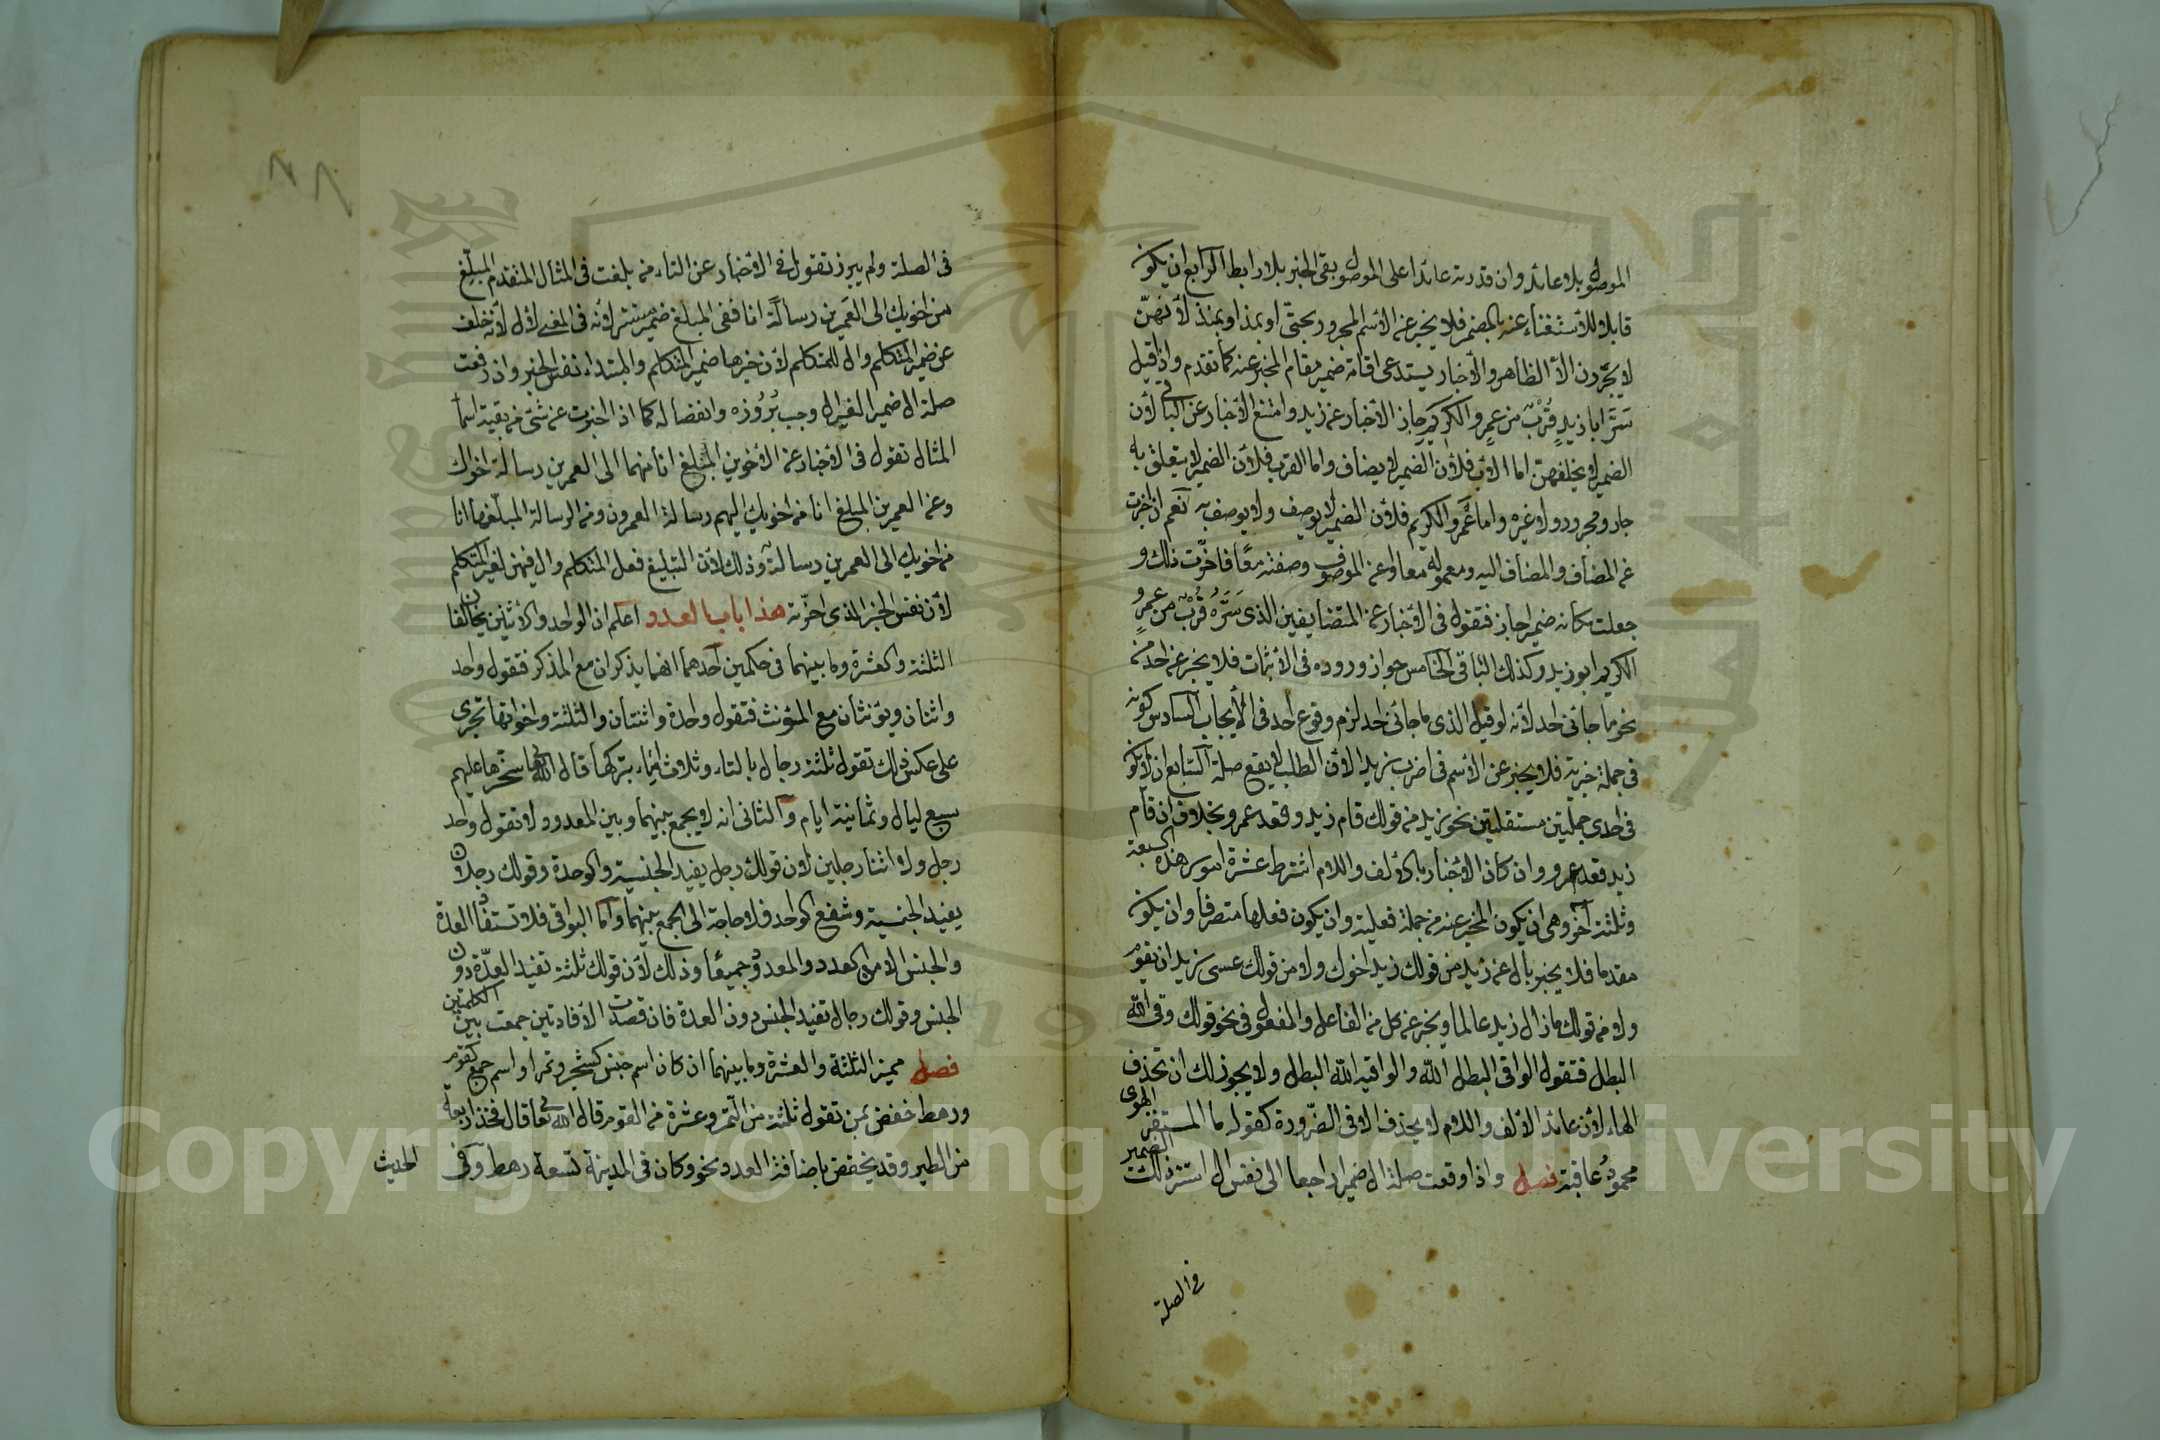 الموصول بلا عائد وان قدرته عائدا على الموصول بقى الخبر بلا رابط الرابع ان يكون
قابلا للاستغناء عنه بالمضمر فلا يخبر عن الاسم المجرور بحتى او بمذ او بمنذ لانهن
لا يجررن الا الظاهر والاخبار يستدعى اقامة ضمير مقام المخبر عنه كما تقدم واذا قيل
سَرَّ ابا زيدٍ قُرْبٌ من عمرٍو الكريم جاز الاخبار عن زيد وامتنع الاخبار عن الباقى لان
الضمير لا يخلفهن اما الاب فلان الضمير لا يضاف واما القرب فلان الضمير لا يتعلق به
جار ومجرور ولا غيره واما عمرو الكريم فلان الضمير لا يوصف ولا يوصف به نعم ان اخبرت
عن المضاف والمضاف اليه ومعموله معا او عن الموصوف وصفته معًا فاخّرت ذلك و
جعلت مكانه ضميرا جاز فتقول فى الاخبار عن المتضايفين الذى سَرَّهُ قُرْبٌ من عمرٍو
الكريم ابو زيد وكذلك الباقى الخامس جواز وروده فى الاثبات فلا يخبر عن احد من
نحو ما جاءنى احد لانه لو قيل الذى ما جاءنى احد لزم وقوع احد فى الايجاب السادس كونه
فى جملة خبرية فلا يخبر عن الاسم فى اضرب زيدا لان الطلب لا يقع صلة السابع ان لا يكون
فى احدى جملتين مستقلتين نحو زيد من قولك قام زيد وقعد عمرو بخلاف ان قام
زيد قعد عمرو وان كان الاخبار بالالف واللام اشترط عشرة امور هذه السبعة
وثلثة اخر وهى ان يكون المخبر عنه من جملة فعلية وان يكون فعلها متصرفا وان يكون
مقدما فلا يخبر بال عن زيد من قولك زيد اخوك ولا من قولك عسى زيد ان يقوم
ولا من قولك ما زال زيد عالما ويخبر عن كل من الفاعل والمفعول فى نحو قولك وقى الله
البطل فتقول الواقى البطل الله والواقيه الله البطل ولا يجوز لك ان تحذف
الهاء لان عائد الالف واللام لا يحذف الا فى الضرورة كقوله ما المستفز الهوى
محمود عاقبة فصل واذا وقعت صلة ال ضميرا راجعا الى نفس ال استتر ذلك الضمير
فى الصلة
فى الصلة ولم يبرز تقول فى الاخبار عن التاء من بلغت فى المثال المتقدم المبلّغ
من اخويك الى العَمرين رسالةً انا ففى المبلغ ضمير مستتر لانه فى المعنى لال لانه خلف
عن ضمير المتكلم وال للمتكلم لان خبرها ضمير المتكلم والمبتداء نفس الخبر وان رفعت
صلة ال ضميرا لغير ال وجب بُرُوزه وانفصاله كما اذا اخبرت عن شئ من بقية اسماء
المثال تقول فى الاخبار عن الاخوين المبلغ انا منهما الى العمرين رسالة اخواك
وعن العمرين المبلغ انا من اخويك اليهم رسالة العمرون ومن الرسالة المبلغها انا
من اخويك الى العمرين رسالة وذلك لان التبليغ فعل المتكلم وال فيهن لغير المتكلم
لان نفس الخبر الذى اخّرته هذا باب العدد اعلم ان الواحد والاثنين يخالفان
الثلثة والعشرة وما بينهما فى حكمين احدهما انهما يذكران مع المذكر فتقول واحد
واثنان ويؤنثان مع المؤنث فتقول واحدة واثنتان والثلثة واخواتها تجرى
على عكس ذلك تقول ثلثة رجال بالتاء وثلاث اماء بتركها قال الله تعالى سخرها عليهم
سبع ليال وثمانية ايام والثانى انه لا يجمع بينهما وبين المعدود لا تقول واحد
رجل ولا اثنا رجلين لان قولك رجل يفيد الجنسية والوحدة وقولك رجلان
يفيد الجنسية وشفع الواحد فلا حاجة الى الجمع بينهما واما البواقى فلا تستفاد العدة
والجنس الا من العدد والمعدود جميعًا وذلك لان قولك ثلثة تفيد العدّة دون
الجنس وقولك رجال تفيد الجنس دون العدة فان قصدت الافادتين جمعت بين الكلمتين
فصل مميز الثلثة والعشرة وما بينهما ان كان اسم جنس كشجر وتمر او اسم جمع كقوم
ورهط خفض بمن تقول ثلثة من التمر وعشرة من القوم قال الله تعالى قال فخذ اربعة
من الطير وقد يخفض باضافة العدد نحو وكان فى المدينة تسعة رهط وفى
الحديث